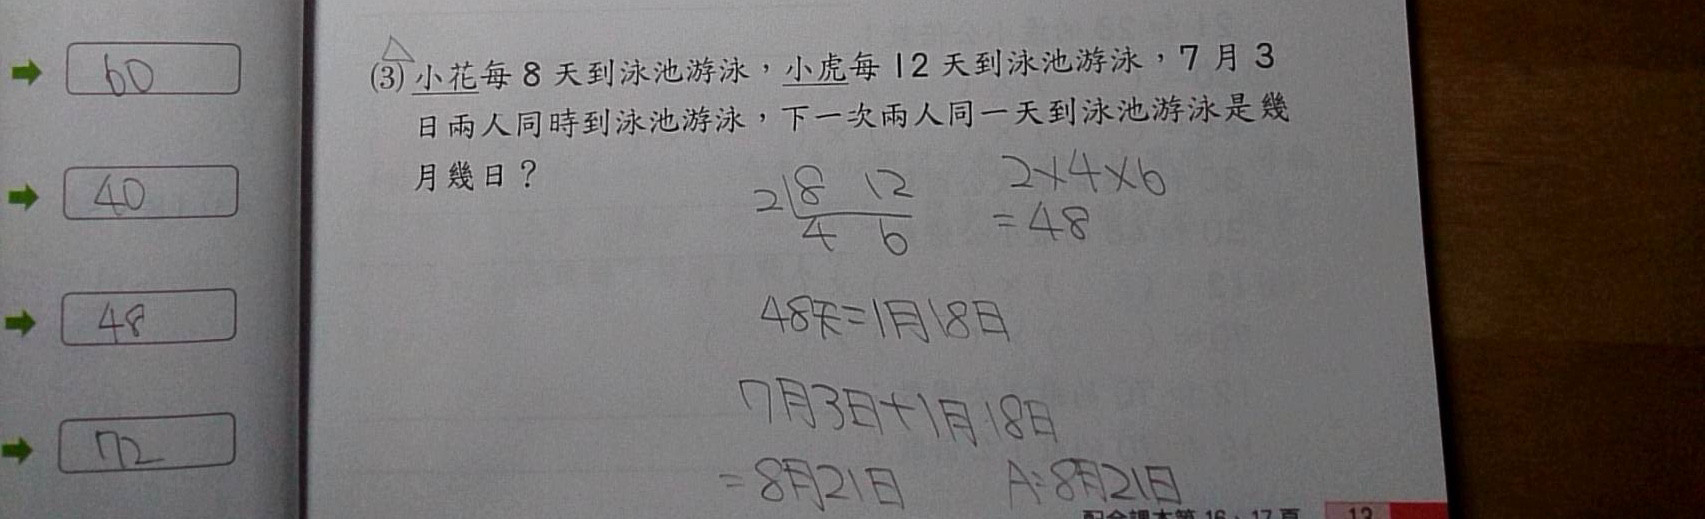 60
40
48
72
(3) 小花每 8 天到泳池游泳，小虎每 12 天到泳池游泳，7 月 3
日兩人同時到泳池游泳，下一次兩人同一天到泳池游泳是幾
月幾日？
2 8 12
4 6
2×4×6
=48
48天=1月18日
7月3日+1月18日
=8月21日
A:8月21日
配合課本第 16、17 頁
13